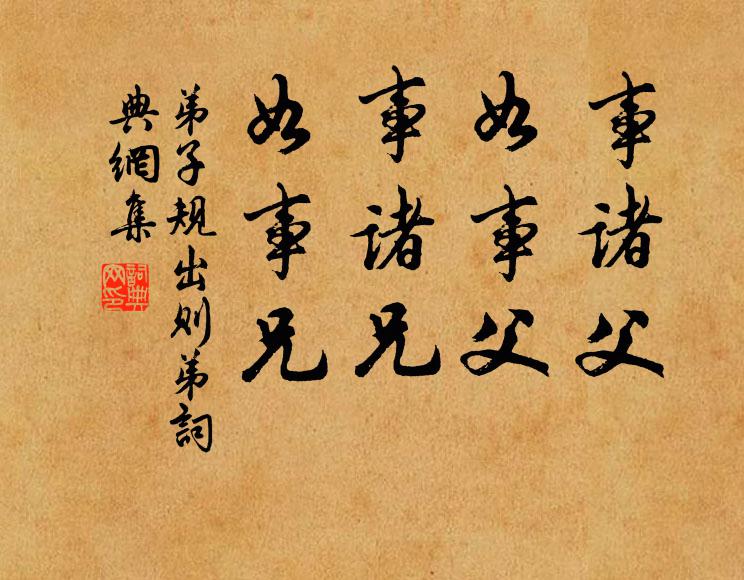 事诸父
如事父
事诸兄
如事兄
弟子規出则弟詞
典網集
詞典
网印